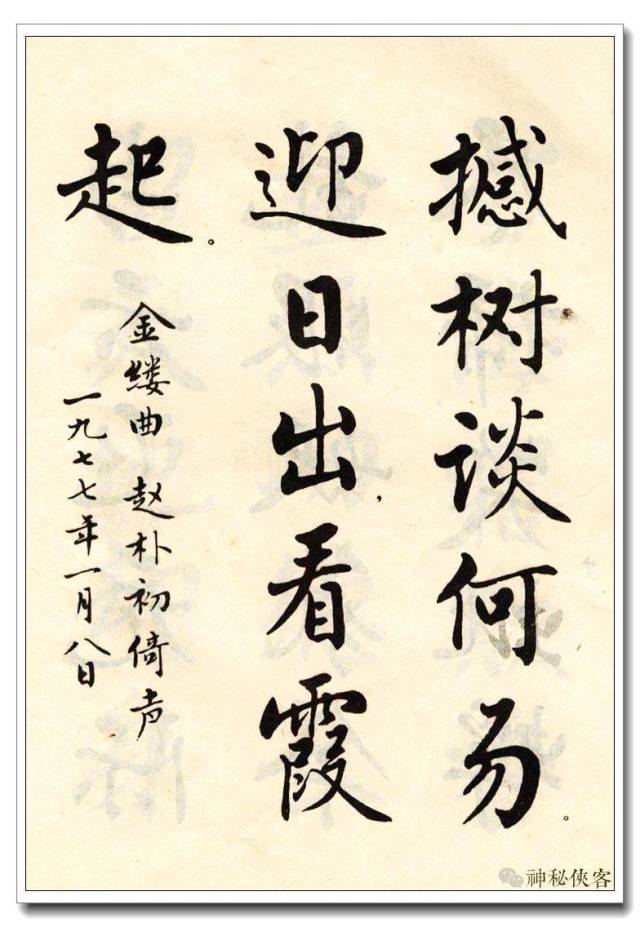 撼树谈何易。
迎日出，看霞
起。
金缕曲 赵朴初倚声
一九七七年一月八日
神秘俠客